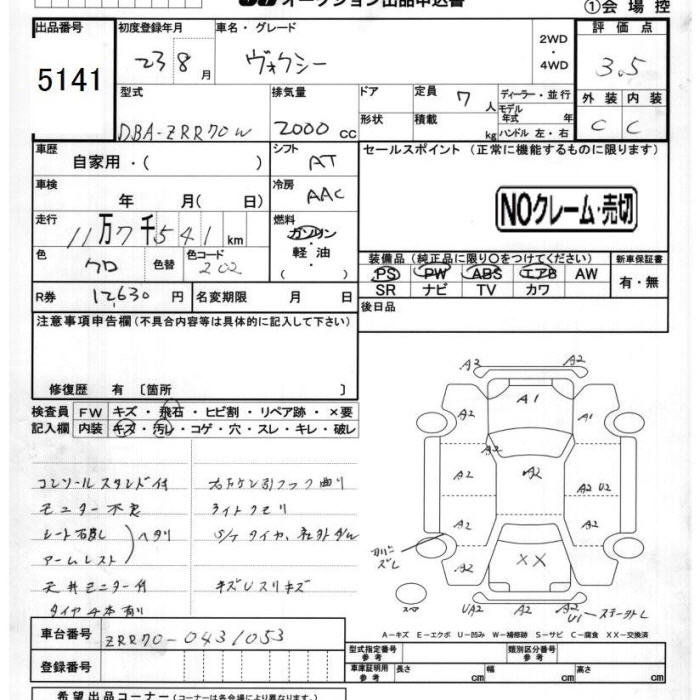 オークション出品申込書
①会場控
出品番号 初度登録年月 車名・グレード 2WD・4WD 評価点
5141 23 8月 ヴォクシー 3.5
型式 排気量 ドア 定員 7人 ディーラー・並行 外装 内装
モデル年式 年
DBA-ZRR70W 2000cc 形状 積載 kg ハンドル 左・右 C C
車歴 シフト セールスポイント(正常に機能するものに限ります)
自家用・( ) AT
車検 冷房
年 月( 日) AAC NOクレーム・売切
走行 燃料
11万7千541km ガソリン・軽油・( )
色 色替 色コード 装備品(純正品に限り○をつけてください) 新車保証書
クロ 202 PS PW ABS エアB AW 有・無
R券 12,630円 名変期限 月 日 SR ナビ TV カワ
注意事項申告欄(不具合内容等は具体的に記入して下さい) 後日品
修復歴 有〔箇所 〕
検査員 FW キズ・飛石・ヒビ割・リペア跡・×要
記入欄 内装 キズ・汚れ・コゲ・穴・スレ・キレ・破レ
コンソールスタンド付 フック曲り
モニター不良 ライトクモリ
ヘタリ S/Tタイヤ、社外
アームレスト
天井モニター付 キズUスリキズ
タイヤ4本有り
A2 A2
A1
A2 A1
A2 A2 A2 U2
A2 A2
カバーズレ
XX
スペア UA2 A2 A2 U1
A-キズ E-エクボ U-凹み W-補修跡 S-サビ C-腐食 XX-交換済
車台番号 ZRR70-0431053 型式指定番号 参考 類別区分番号 参考
登録番号 車庫証明用 参考 長さ cm 幅 cm 高さ cm
希望出品コーナー(コーナーは各会場により異なります。)